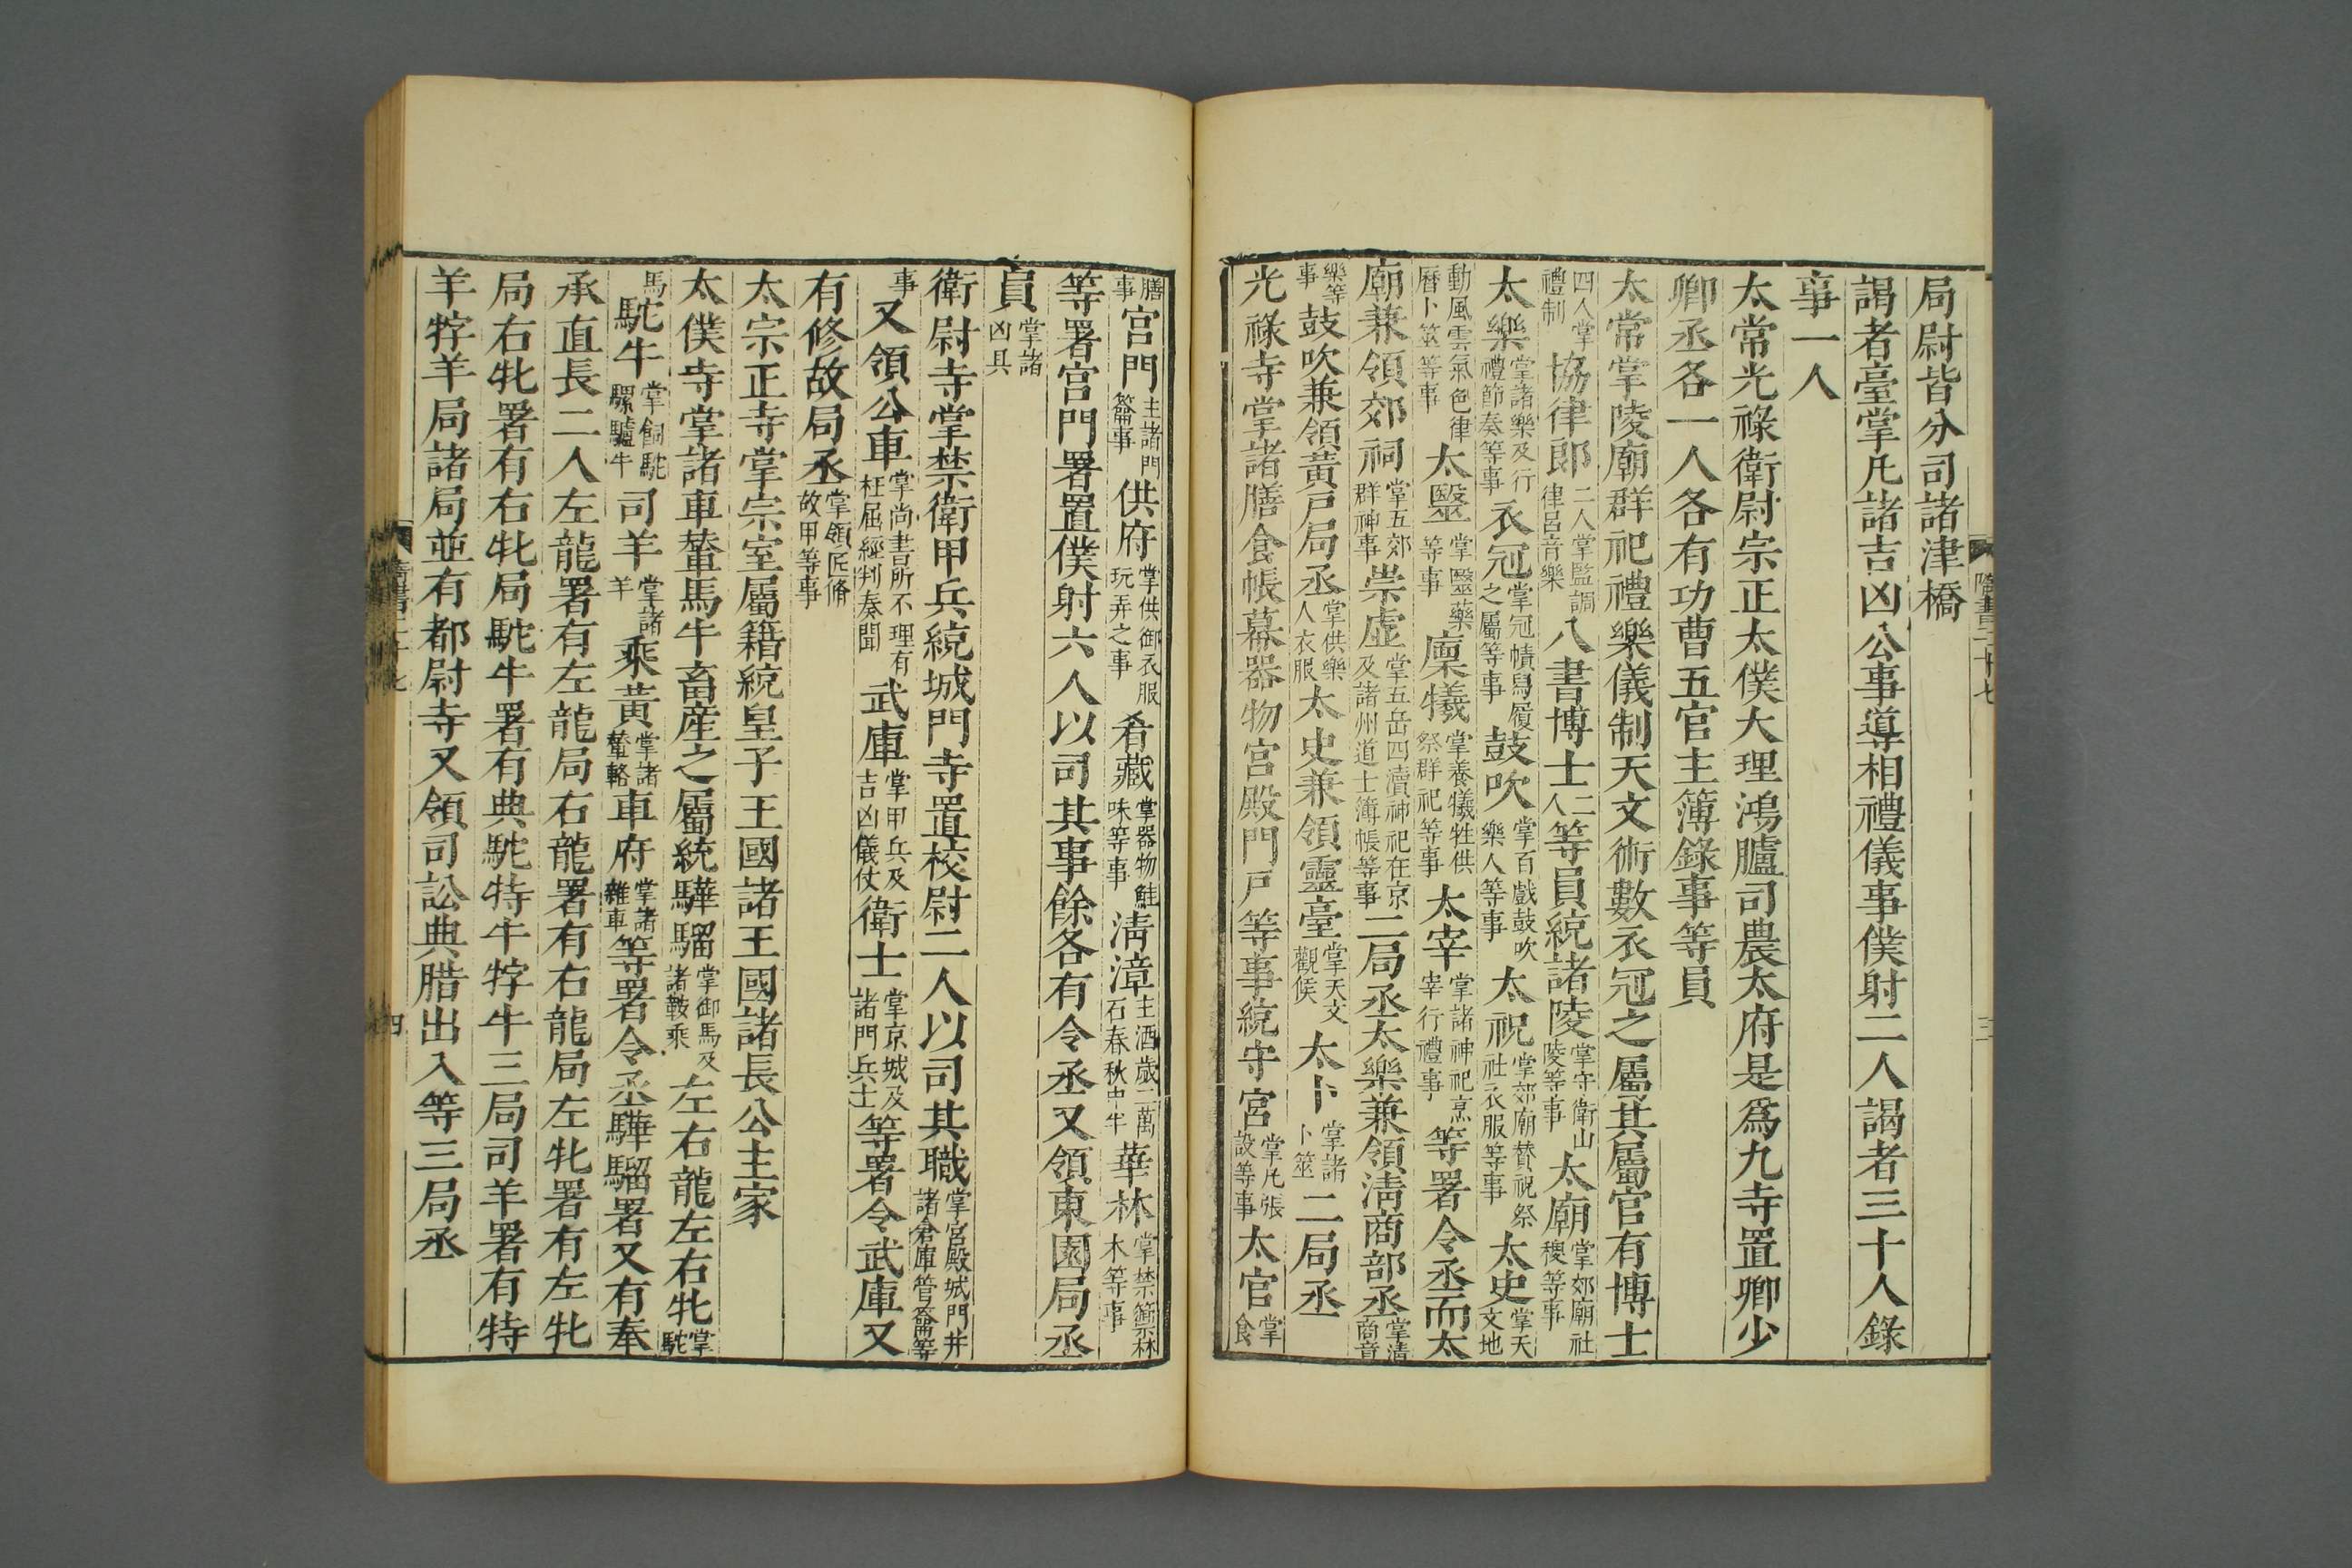 局尉皆分司諸津橋
謁者臺掌凡諸吉凶公事導相禮儀事僕射二人謁者三十人錄
事一人
太常光祿衛尉宗正太僕大理鴻臚司農太府是爲九寺置卿少
卿丞各一人各有功曹五官主簿錄事等員
太常掌陵廟群祀禮樂儀制天文術數衣冠之屬其屬官有博士
四人掌禮制協律郎二人掌監調律呂音樂八書博士二人等員統諸陵掌守衛山陵等事太廟掌郊廟社稷等事
太樂掌諸樂及行禮節奏等事衣冠掌冠幘舄履之屬等事鼓吹掌百戲鼓吹樂人等事太祝掌郊廟賛祝祭社衣服等事太史掌天文地
動風雲氣色律曆卜筮等事太醫掌醫藥等事廩犧掌養犧牲供祭群祀等事太宰掌諸神祀烹宰行禮事等署令丞而太
廟兼領郊祠掌五郊群神事崇虛掌五岳四瀆神祀在京及諸州道士簿帳等事二局丞太樂兼領淸商部丞掌淸商音
樂等事鼓吹兼領黃戸局丞掌供樂人衣服太史兼領靈臺掌天文觀候太卜掌諸卜筮二局丞
光祿寺掌諸膳食帳幕器物宮殿門戸等事統守宮掌凡張設等事太官掌食
膳事宮門主諸門籥事供府掌供御衣服玩弄之事肴藏掌器物鮭味等事淸漳主酒歲二萬石春秋中半華林掌禁籞林木等事
等署宮門署置僕射六人以司其事餘各有令丞又領東園局丞
員掌諸凶具
衛尉寺掌禁衛甲兵統城門寺置校尉二人以司其職掌宮殿城門幷諸倉庫管籥等
事又領公車掌尚書所不理有枉屈經判奏聞武庫掌甲兵及吉凶儀仗衛士掌京城及諸門兵士等署令武庫又
有修故局丞掌領匠修故甲等事
太宗正寺掌宗室屬籍統皇子王國諸王國諸長公主家
太僕寺掌諸車輦馬牛畜産之屬統驊騮掌御馬及諸鞍乘左右龍左右牝掌駝
馬駝牛掌飼駝騾驢牛司羊掌諸羊乘黃掌諸輦輅車府掌諸雜車等署令丞驊騮署又有奉
承直長二人左龍署有左龍局右龍署有右龍局左牝署有左牝
局右牝署有右牝局駝牛署有典駝特牛牸牛三局司羊署有特
羊牸羊局諸局並有都尉寺又領司訟典腊出入等三局丞
隋書二十七
三
四